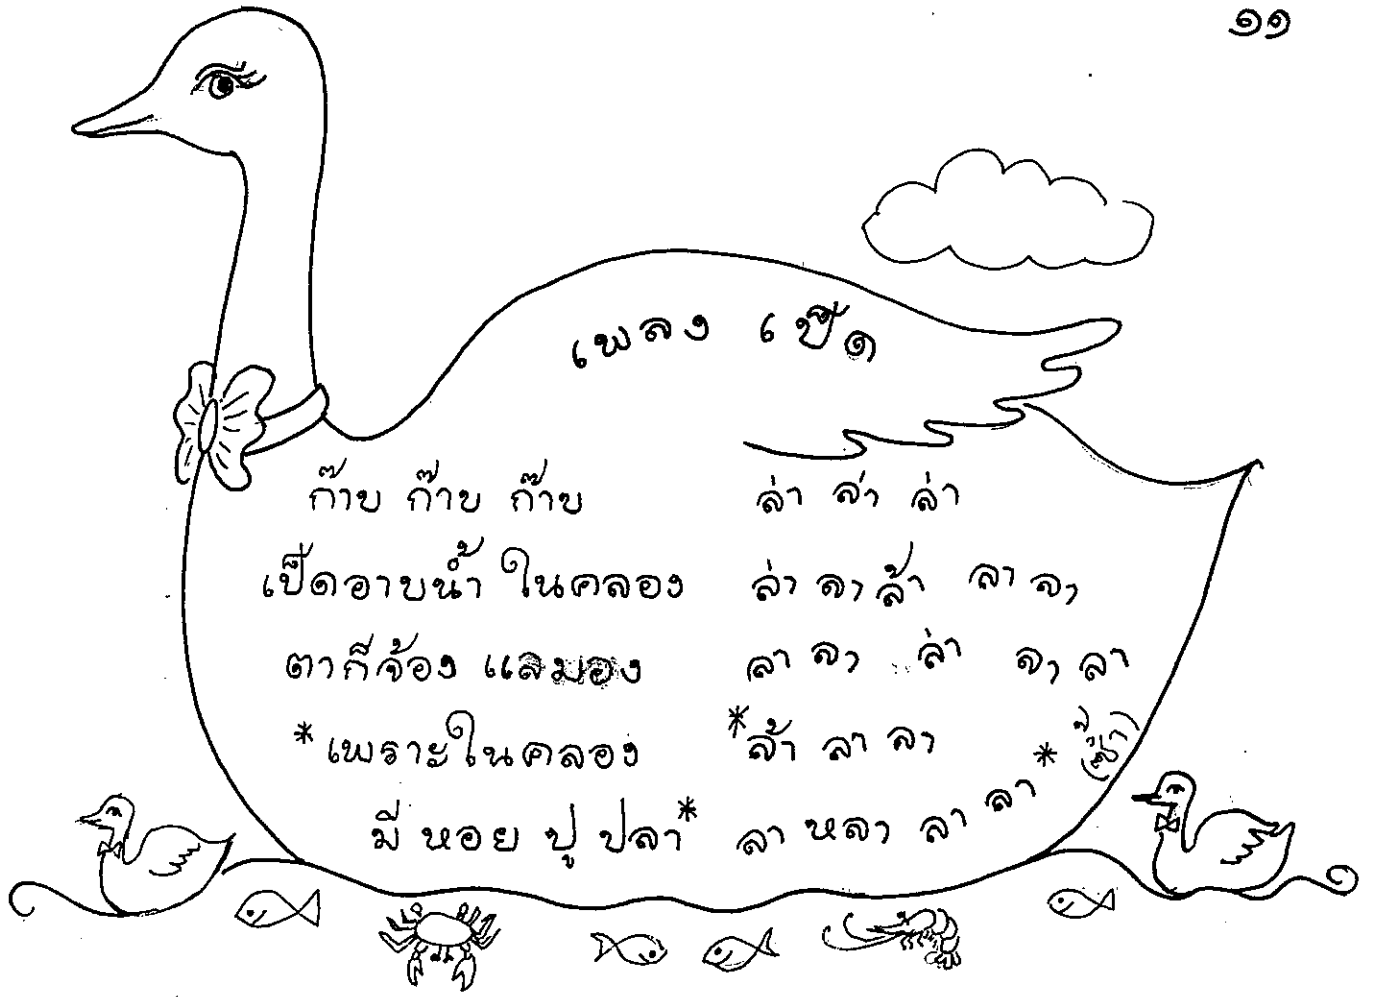 ๑๑
เพลง เป็ด
ก๊าบ ก๊าบ ก๊าบ ล่า ล่า ล่า
เป็ดอาบน้ำ ในคลอง ล่า ลา ล้า ลา ลา
ตาก็จ้อง แลมอง ลา ลา ล่า ลา ลา
*เพราะในคลอง *ล้า ลา ลา
มี หอย ปู ปลา* ลา หลา ลา ลา* (ซ้ำ)